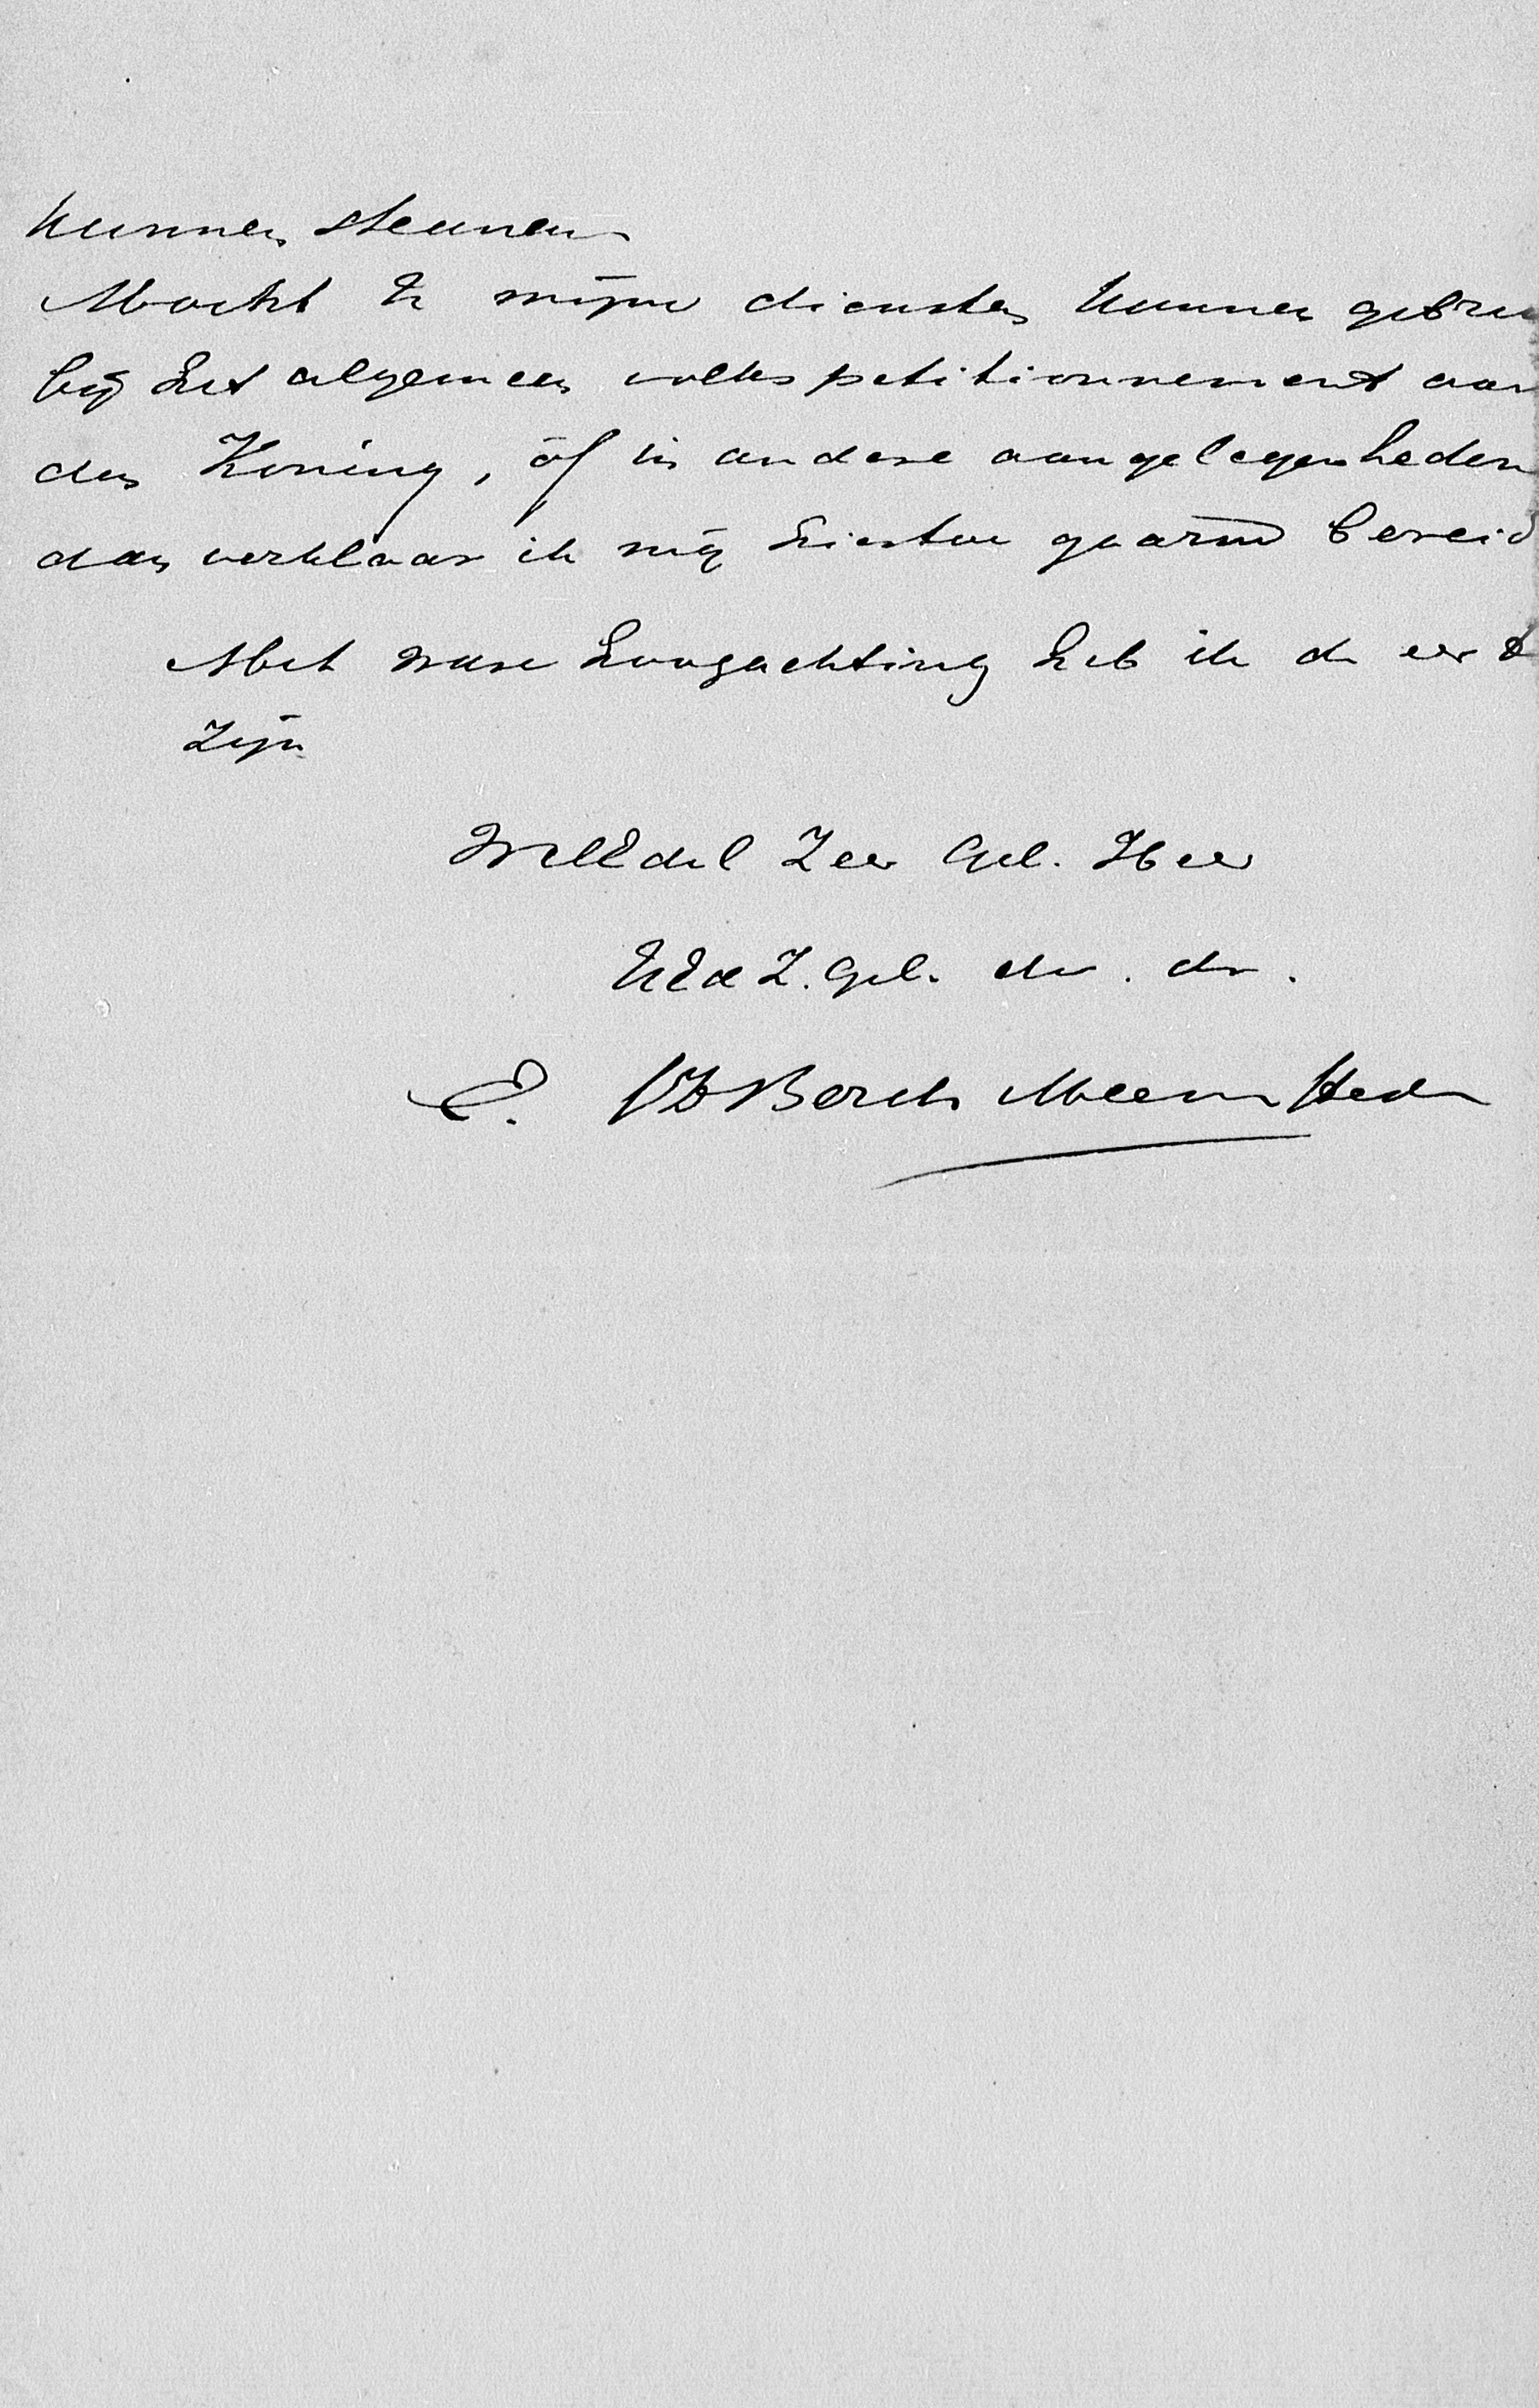 kunnen steunen
Mocht U mijne diensten kunnen gebru
bij het algemeen volks petitionnement aan
den Koning, óf in andere aangelegenheden
dan verklaar ik mij hiertoe gaarne bereid
Met ware hoogachting heb ik de eer te
zijn
WelEdel Zeer Gel. Heer
UEd Z. Gel. dw. dr.
E. VD Berch Heemstede